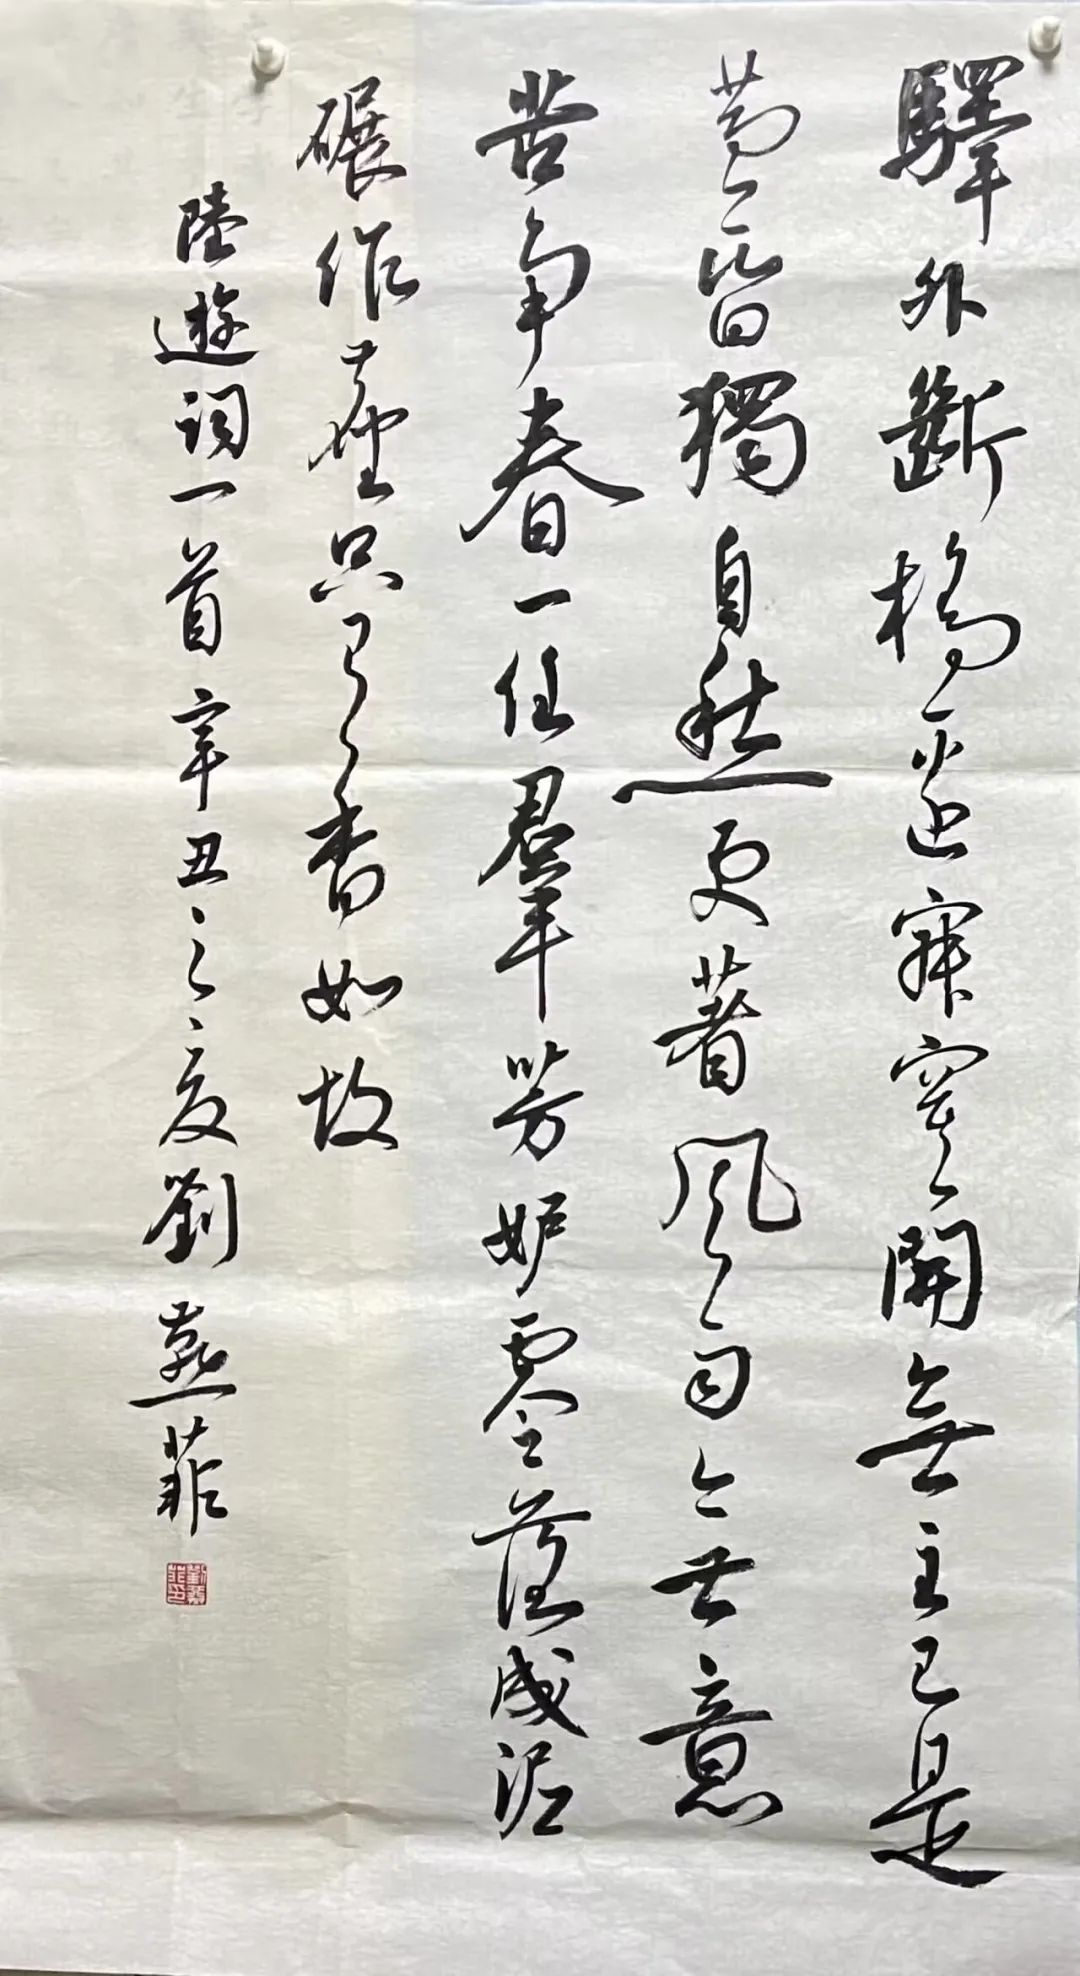 驛外斷橋邊寂寞開無主已是
黃昏獨自愁更著風和雨無意
苦爭春一任羣芳妒零落成泥
碾作塵只有香如故
陸遊詞一首辛丑之夏劉燕菲
劉燕菲印